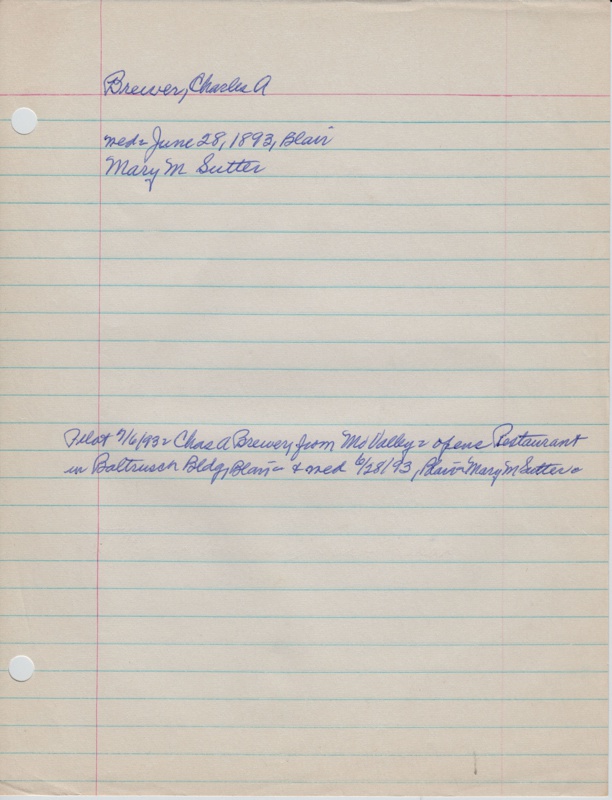 Brewer, Charles A
med= June 28, 1893, Blair
Mary M Sutter
Pilot 7/6/93= Chas A Brewer, from Mo Valley= opens Restaurant
in Baltrusch Bldg, Blair= & med 6/28/93, Blair= Mary M Sutter=